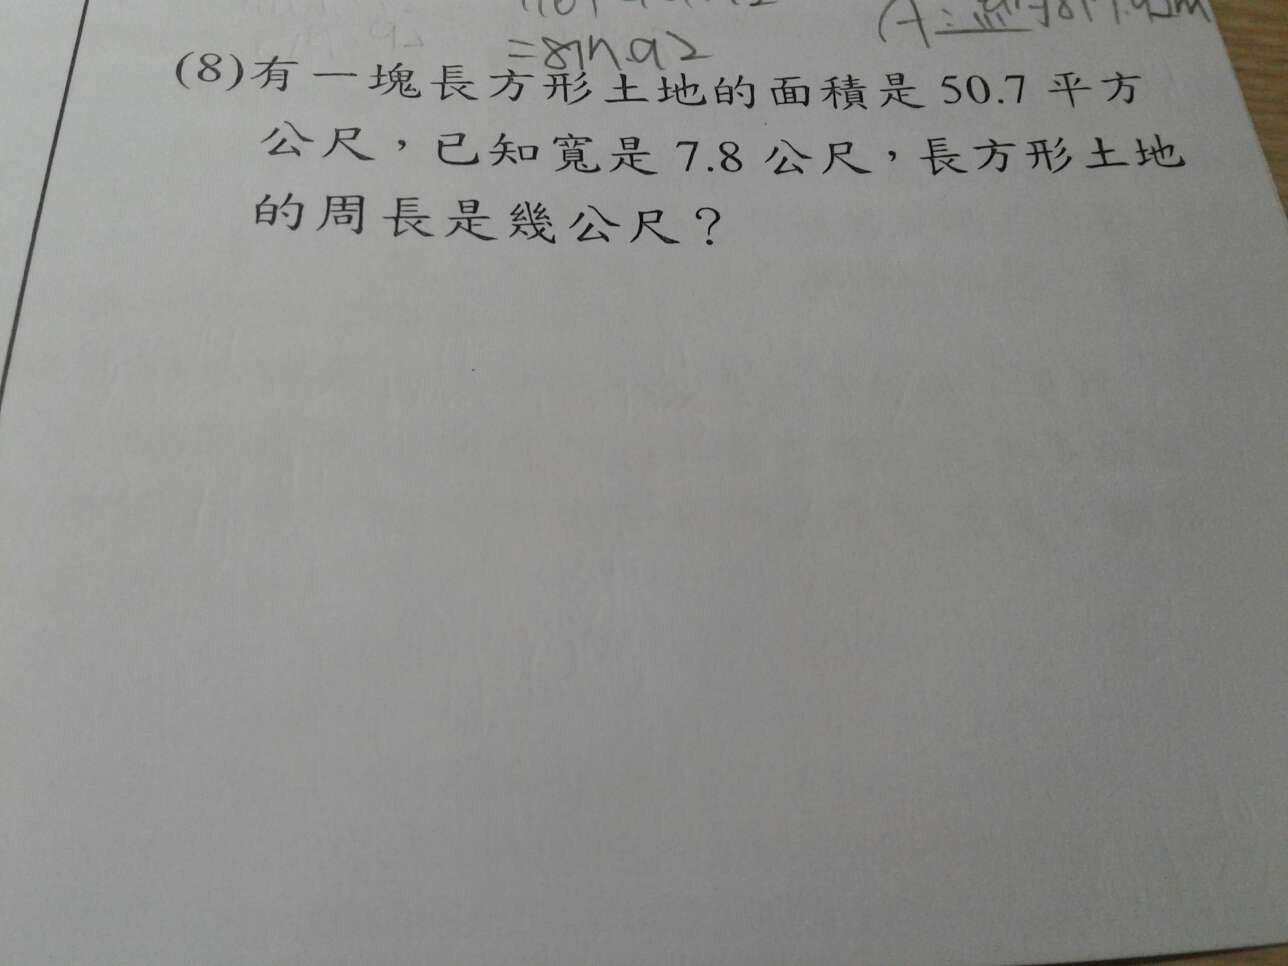 =810.92
(8)有一塊長方形土地的面積是50.7平方
公尺，已知寬是7.8公尺，長方形土地
的周長是幾公尺？